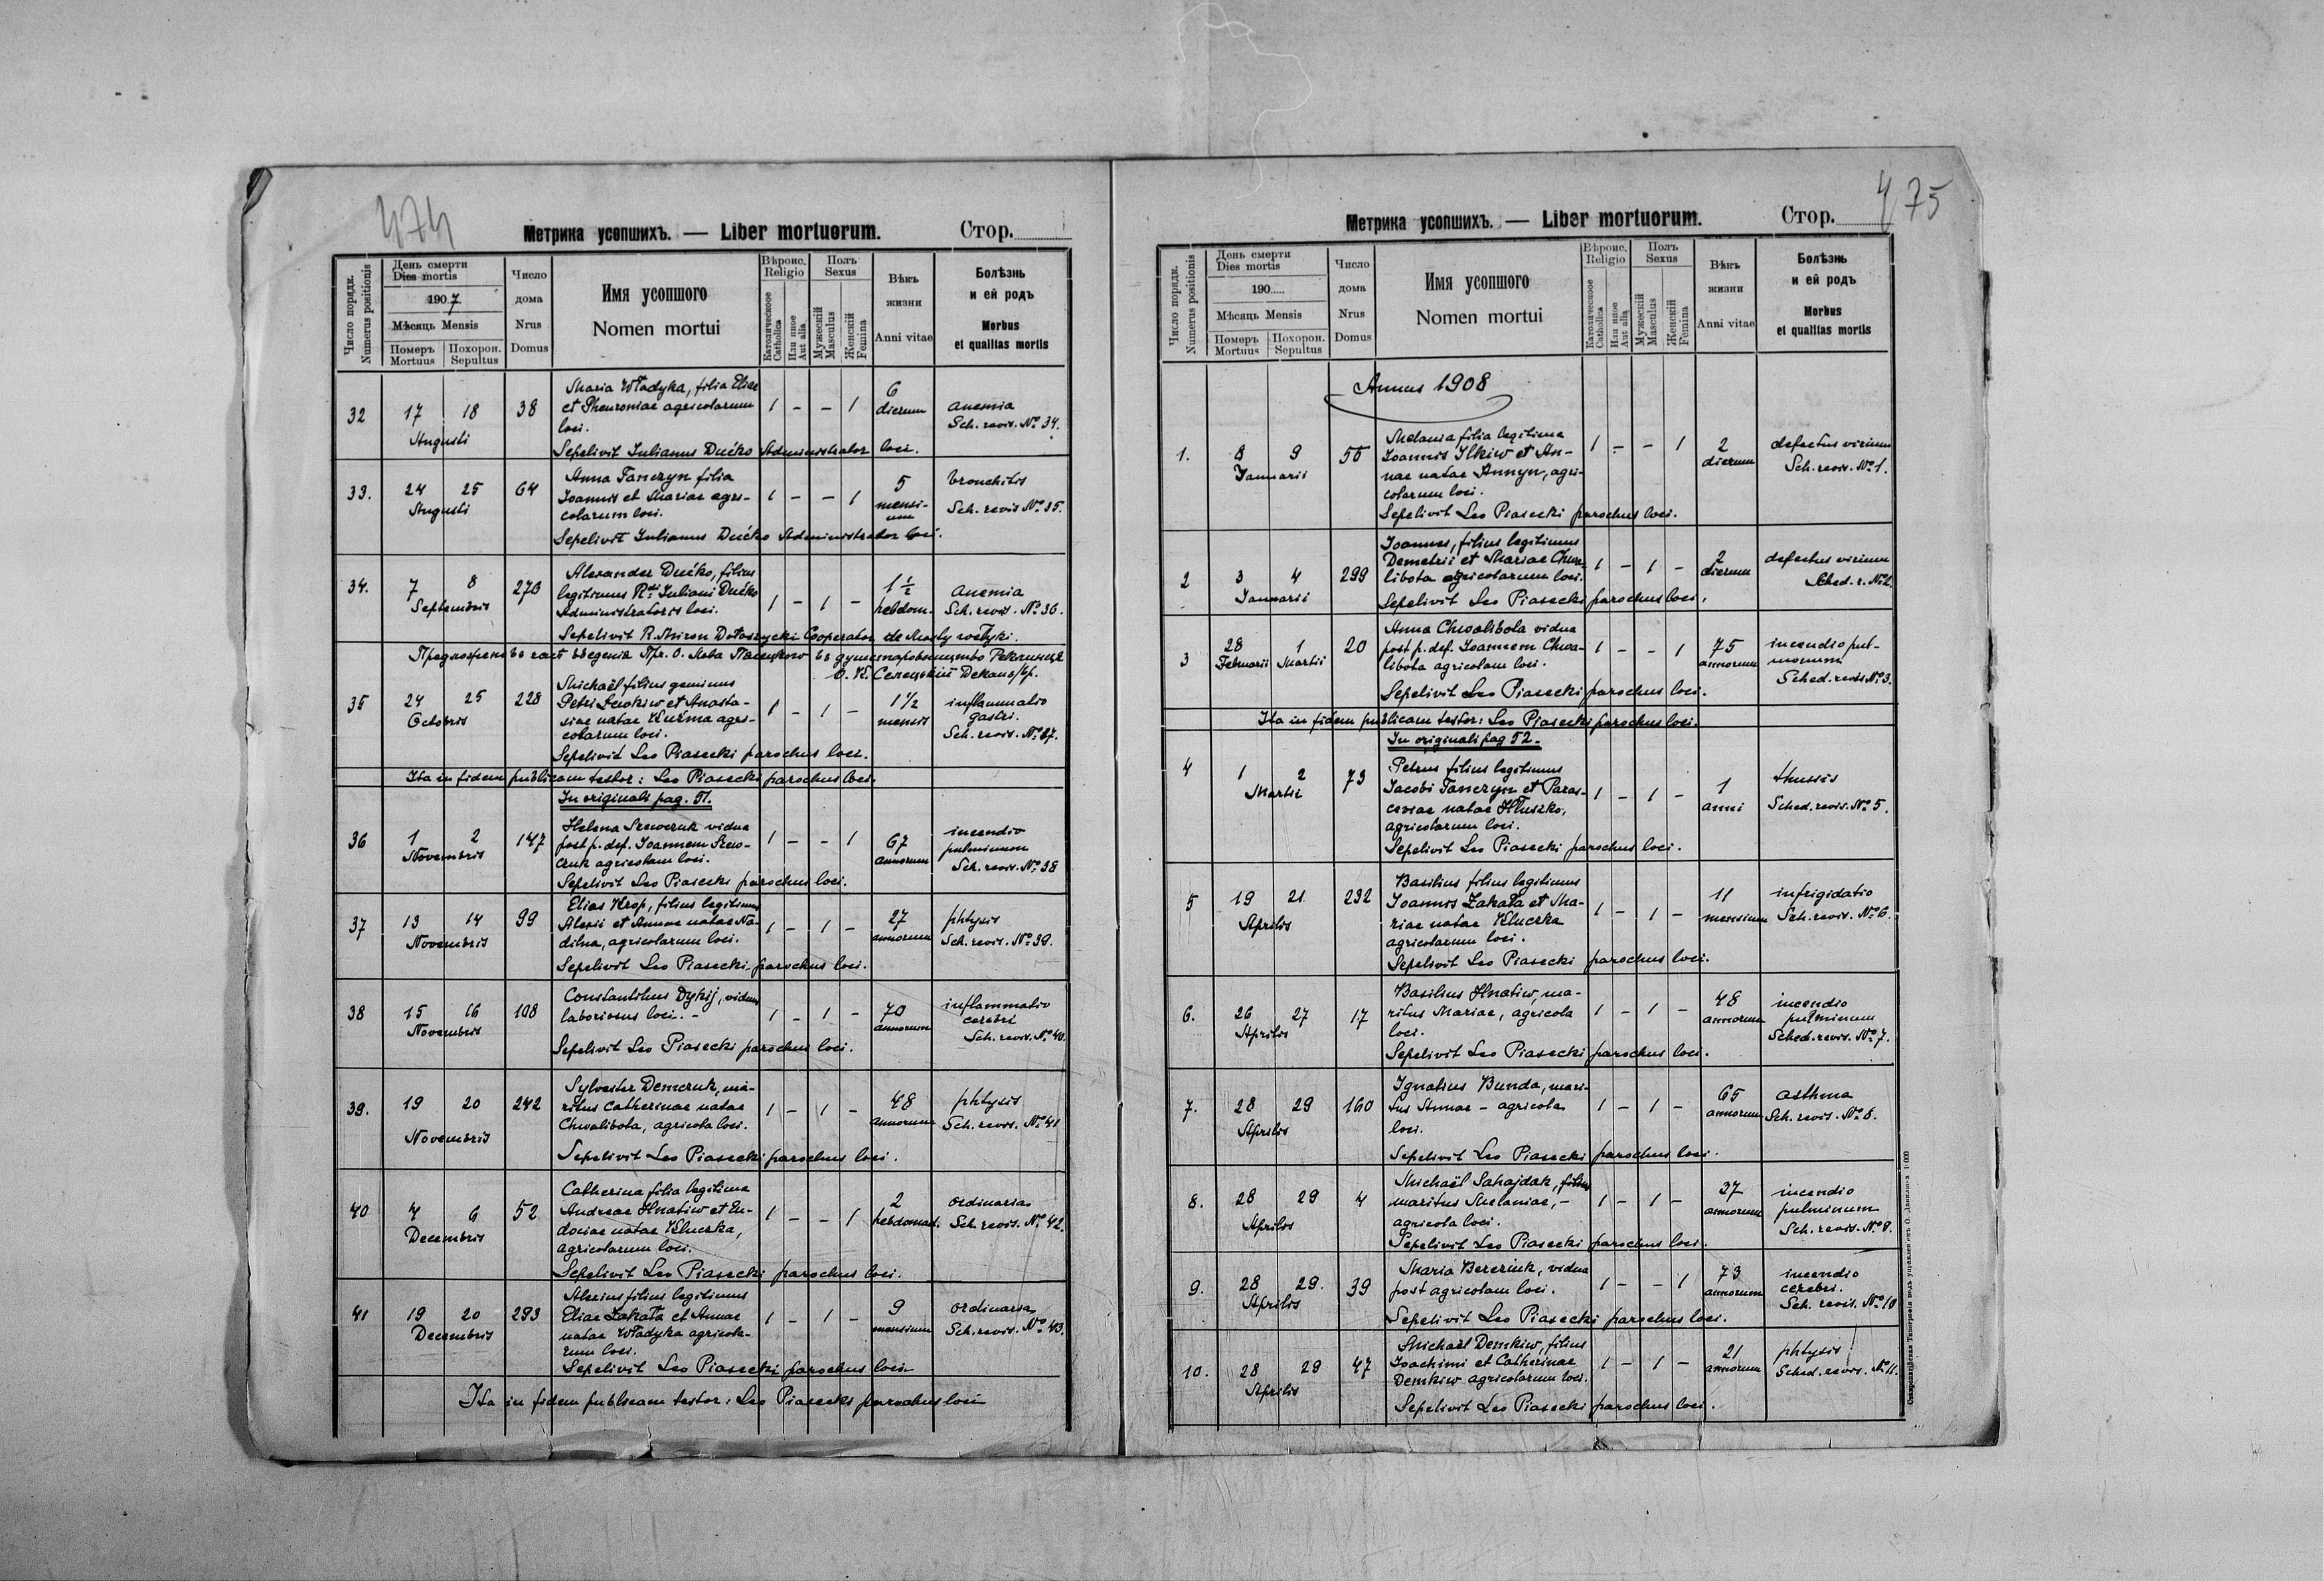 474
Метрика усопшихъ. — Liber mortuorum.
Стор.
Число порядк.
Numerus positionis
День смерти
Dies mortis
1907
Мѣсяць Mensis
Померъ
Mortuus
Похорон.
Sepultus
Число
дома
Nrus
Domus
Имя усопшого
Nomen mortui
Вѣроис.
Religio
Католическое
Catholica
Или иное
Aut alia
Полъ
Sexus
Мужескій
Masculus
Женскій
Femina
Вѣкъ
жизни
Anni vitae
Болѣзнь
и ей родъ
Morbus
et qualitas mortis
32 17 18 Augusti 38
Maria Władyka, filia Eliae
et Pheuroniae agricolarum
loci.
1 - - 1
6
dierum
anemia
Sch. revis. No 34.
Sepelivit Julianus Dućko Administrator loci.
33. 24 25 Augusti 64
Anna Tanczyn filia
Joannis et Mariae agri-
colarum loci.
1 - - 1
5
mensi-
um
bronchitis
Sch. revis No 35.
Sepelivit Julianus Dućko Administrator loci.
34. 7 8 Septembris 273
Alexander Dućko, filius
legitimus Rdi Juliani Dućko
Administratoris loci.
1 - 1 -
1 1/2
hebdom.
Anemia
Sch. revis. No 36.
Sepelivit R. Miron Dołoszycki Cooperator de Mosty wełyki.
35 24 25 Octobris 228
Michaël filius geminus
Petri Lewkiw et Anasta-
siae natae Kuźma agri-
colarum loci.
1 - 1 -
1 1/2
mensis
inflammatio
gastri.
Sch. revis. No 37.
Sepelivit Leo Piasecki parochus loci.
Ita in fidem publicam testor: Leo Piasecki parochus loci.
In originali pag. 51.
36 1 2 Novembris 147
Helena Szewczuk vidua
post p. def. Joannem Szew-
czuk agricolam loci.
1 - - 1
67
annorum
incendio
pulminum
Sch. revis. No 38
Sepelivit Leo Piasecki parochus loci.
37 13 14 Novembris 99
Elias Krop, filius legitimus
Alexii et Annae natae Na-
dilna, agricolarum loci.
1 - 1 -
27
annorum
phtysis
Sch. revis. No 39.
Sepelivit Leo Piasecki parochus loci.
38 15 16 Novembris 108
Constantinus Dykij, viduus
laboriosus loci. -
1 - 1 -
70
annorum
inflammatio
cerebri
Sch. revis. No 40.
Sepelivit Leo Piasecki parochus loci.
39. 19 20 Novembris 242
Sylvester Demczuk, ma-
ritus Catherinae natae
Chwalibota, agricola loci.
1 - 1 -
48
annorum
phtysis
Sch. revis. No 41
Sepelivit Leo Piasecki parochus loci.
40 4 6 Decembris 52
Catherina filia legitima
Andreae Hnatiw et Eu-
dociae natae Kluczka,
agricolarum loci.
1 - - 1
2
hebdomad.
ordinaria
Sch. revis. No 42.
Sepelivit Leo Piasecki parochus loci.
41 19 20 Decembris 293
Alexius filius legitimus
Eliae Zakała et Annae
natae Władyka agricola-
rum loci.
1 - 1 -
9
mensium
ordinaria
Sch. revis. No 43.
Sepelivit Leo Piasecki parochus loci
Ita in fidem publicam testor: Leo Piasecki parochus loci
475
Метрика усопшихъ. — Liber mortuorum.
Стор.
Число порядк.
Numerus positionis
День смерти
Dies mortis
190
Мѣсяць Mensis
Померъ
Mortuus
Похорон.
Sepultus
Число
дома
Nrus
Domus
Имя усопшого
Nomen mortui
Вѣроис.
Religio
Католическое
Catholica
Или иное
Aut alia
Полъ
Sexus
Мужескій
Masculus
Женскій
Femina
Вѣкъ
жизни
Anni vitae
Болѣзнь
и ей родъ
Morbus
et qualitas mortis
Annus 1908
1. 8 9 Januarii 55
Melania filia legitima
Joannis Ilkiw et An-
nae natae Annyn, agri-
colarum loci.
1 - - 1
2
dierum
defectus virium
Sch. revis. No 1.
Sepelivit Leo Piasecki parochus loci.
2 3 4 Januarii 299
Joannes, filius legitimus
Demetrii et Mariae Chwa-
libota agricolarum loci.
1 - 1 -
2
dierum
defectus virium
Sched. r. No 2.
Sepelivit Leo Piasecki parochus loci.
3 28 Februarii 1 Martii 20
Anna Chwalibota vidua
post p. def. Joannem Chwa-
libota agricolam loci.
1 - - 1
75
annorum
incendio pul-
monum
Sched. revis No 3.
Sepelivit Leo Piasecki parochus loci.
Ita in fidem publicam testor: Leo Piasecki parochus loci.
In originali pag 52.
4 1 2 Martii 73
Petrus filius legitimus
Jacobi Tanczyn et Paras-
ceviae natae Hłuszko,
agricolarum loci.
1 - 1 -
1
anni
thussis
Sched. revis. No 5.
Sepelivit Leo Piasecki parochus loci.
5 19 21 Aprilis 232
Basilius filius legitimus
Joannis Zakała et Ma-
riae natae Kluczka
agricolarum loci.
1 - 1 -
11
mensium
infrigidatio
Sch. revis. No 6.
Sepelivit Leo Piasecki parochus loci.
6. 26 27 Aprilis 17
Basilius Hnatiw, ma-
ritus Mariae, agricola
loci.
1 - 1 -
48
annorum
incendio
pulminum
Sched. revis. No 7.
Sepelivit Leo Piasecki parochus loci.
7. 28 29 Aprilis 160
Ignatius Bunda, mari-
tus Annae - agricola
loci.
1 - 1 -
65
annorum
asthma
Sch. revis. No 8.
Sepelivit Leo Piasecki parochus loci.
8. 28 29 Aprilis 4
Michaël Sahajdak, filius
maritus Melaniae, -
agricola loci.
1 - 1 -
37
annorum
incendio
pulminum
Sch. revis. No 9.
Sepelivit Leo Piasecki parochus loci.
9. 28 29. Aprilis 39
Maria Bereziuk, vidua
post agricolam loci.
1 - - 1
73
annorum
incendio
cerebri.
Sch. revis. No 10
Sepelivit Leo Piasecki parochus loci.
10. 28 29 Aprilis 47
Michaël Demkiw, filius
Joachimi et Catherinae
Demkiw agricolarum loci.
1 - 1 -
21
annorum
phtysis
Sched. revis. No 11.
Sepelivit Leo Piasecki parochus loci.